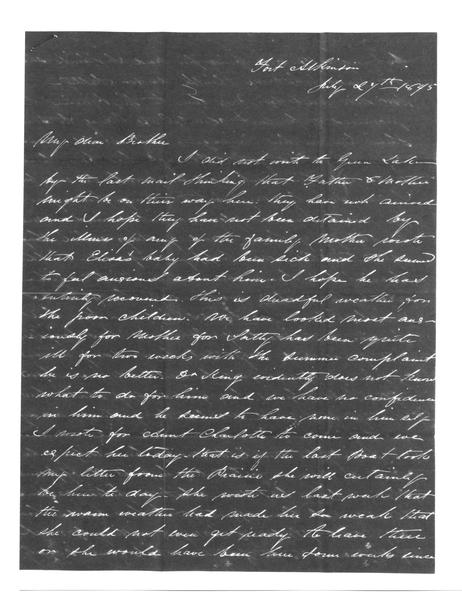 Fort Atkinson
July 27th 1845
My dear Brother
I did not write to Green Lake
by the last mail thinking that Father & Mother
might be on their way here. they have not arrived
and I hope they have not been detained by
the illness of any of the family. Mother wrote
that Eliza's baby had been sick and she seemed
to feel anxious about him. I hope he has
entirely recovered. this is dreadful weather for
the poor children. We have looked most anx-
iously for Mother for has been quite
ill for two weeks with the summer complaint
he is no better. Dr King evidently does not know
what to do for him and we have no confidence
in him and he seems to have none in himself
I wrote for Aunt Charlotte to come and we
expect her today, that is if the last Boat took
my letter from the Prairie she will certainly
be here to day. She wrote us last week that
the warm weather had made her so weak that
she could not even get ready to leave there
or she would have been here some weeks since